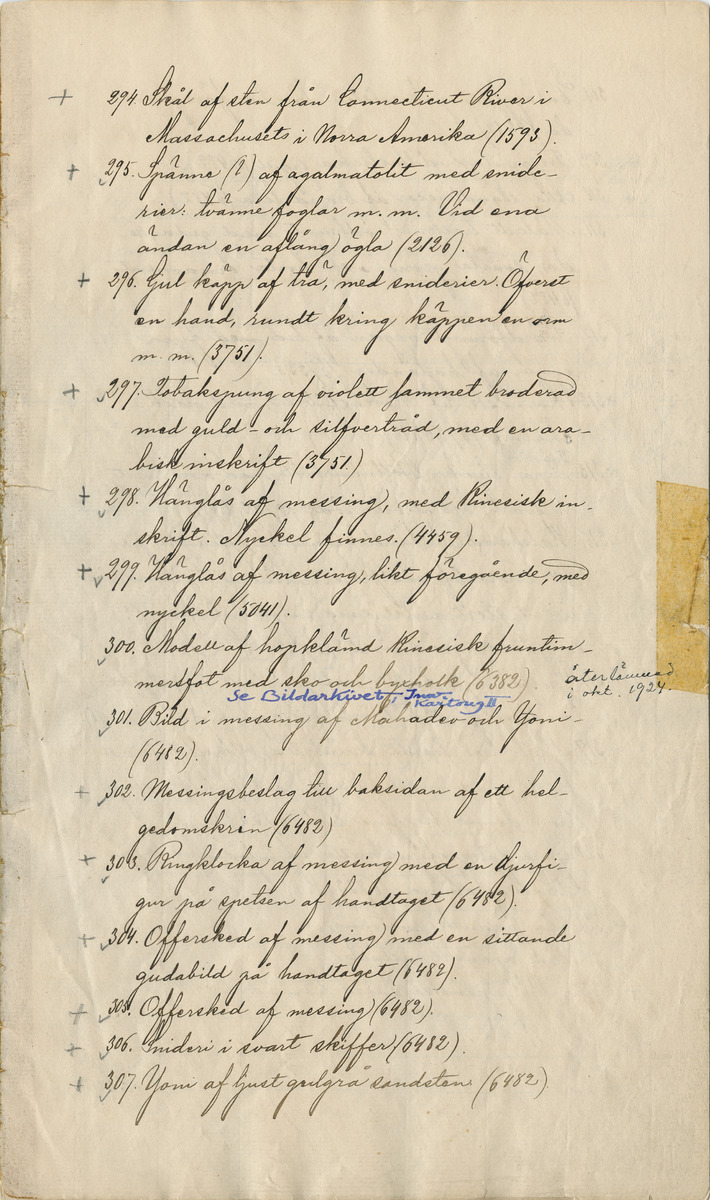 + 294. Skål af sten från Connecticut River i
Massachusets i Norra Amerika (1593).
+ 295. Spänne (?) af agalmatolit med snide-
rier: tvänne foglar m. m. Vid ena
ändan en aflång ögla (2126).
+ 296. Gul käpp af trä, med sniderier. Öfverst
en hand, rundt kring käppen en orm
m. m. (3751).
+ 297. Tobakspung af violett sammet broderad
med guld- och silfvertråd, med en ara-
bisk inskrift (3751.)
+ 298. Hänglås af messing, med Kinesisk in-
skrift. Nyckel finnes. (4459).
+ 299. Hänglås af messing, likt föregående, med
nyckel (5041).
300. Modell af hopklämd Kinesisk fruntim-
mersfot med sko och byxholk (6382).
återlämnad
i okt. 1924.
Se Bildarkivet, Inv.
Kartong II
301. Bild i messing af Mahadev och Yoni-
(6482).
+ 302. Messingsbeslag till baksidan af ett hel-
gedomskrin (6482)
+ 303. Ringklocka af messing med en djurfi-
gur på spetsen af handtaget (6482).
+ 304. Offersked af messing med en sittande
gudabild på handtaget (6482).
+ 305. Offersked af messing (6482).
+ 306. Snideri i svart skiffer (6482).
+ 307. Yoni af ljust gulgrå sandsten (6482)